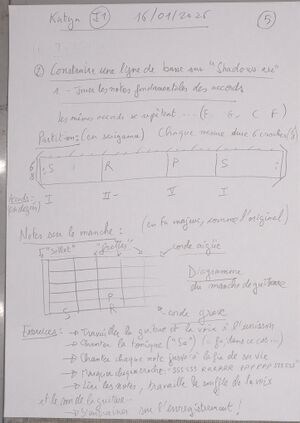 Katya I1 16/01/2026 5
② Construire une ligne de base sur "Shadows are"
1 - Jouer les notes fondamentales des accords
les mêmes accords se répètent ... (F G C F)
Partition: (en serigama) Chaque mesure dure 6 croches (♪)
6 8 S R P S
Accords: I II- V I
(en degrés)
Notes sur le manche: (en fa majeur, comme l'original)
"sillet" "frettes" corde aigüe
Diagramme
du manche de guitare
P
S R corde grave
Exercices: → Travailler la guitare et la voix à l'unisson
→ Chanter la tonique ("Sa") (= fa, dans ce cas...)
→ Chanter chaque note jusqu'à la fin de sa vie
→ Marquer chaque croche: SSSSSS RRRRRR PPPPPP SSSSSS
→ Lier les notes, travailler le souffle de la voix
et le son de la guitare
→ S'entraîner sur l'enregistrement!